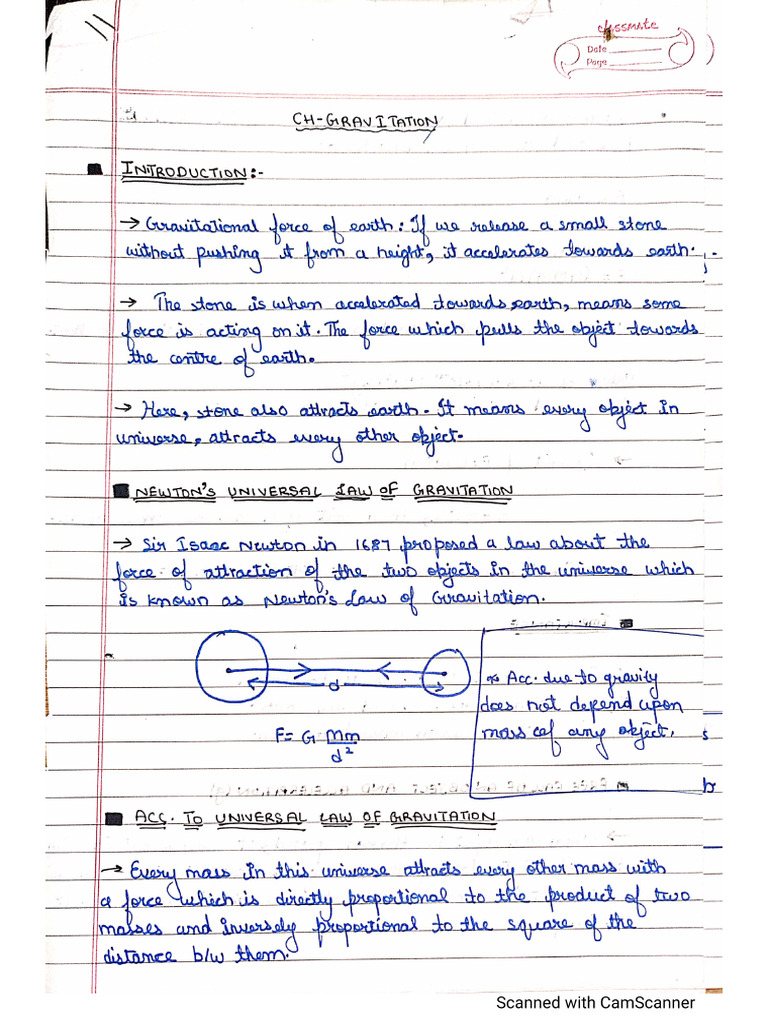 classmate
Date
Page
CH-GRAVITATION
INTRODUCTION:-
→ Gravitational force of earth: If we release a small stone
without pushing it from a height, it accelerates towards earth.
→ The stone is when accelerated towards earth, means some
force is acting on it. The force which pulls the object towards
the centre of earth.
→ Here, stone also attracts earth. It means every object in
universe, attracts every other object.
NEWTON'S UNIVERSAL LAW OF GRAVITATION
→ Sir Isaac Newton in 1687 proposed a law about the
force of attraction of the two objects in the universe which
is known as Newton's Law of Gravitation.
d
F = G Mm
d²
Acc. due to gravity
does not depend upon
mass of any object.
ACC. TO UNIVERSAL LAW OF GRAVITATION
→ Every mass in this universe attracts every other mass with
a force which is directly proportional to the product of two
masses and inversely proportional to the square of the
distance b/w them.
Scanned with CamScanner